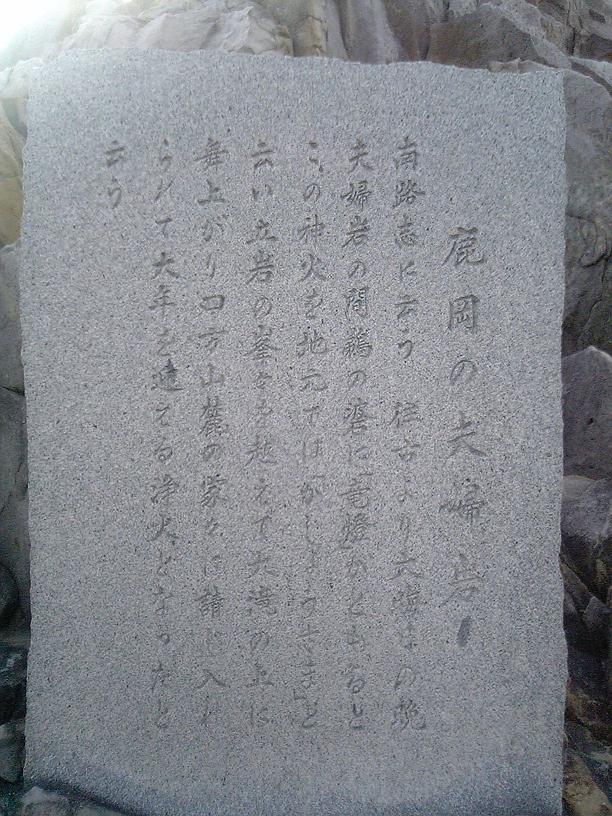 鹿岡の夫婦岩
南路志に云う 往古より大晦日の晩
夫婦岩の間鵜の碆に「竜燈」がともると
この神火を地元では「かしょうさま」と
云い立岩の峯をを越えて大滝の上に
舞上がり四方山麓の家々に請じ入れ
られて大年を違てる浄火となったと
云う